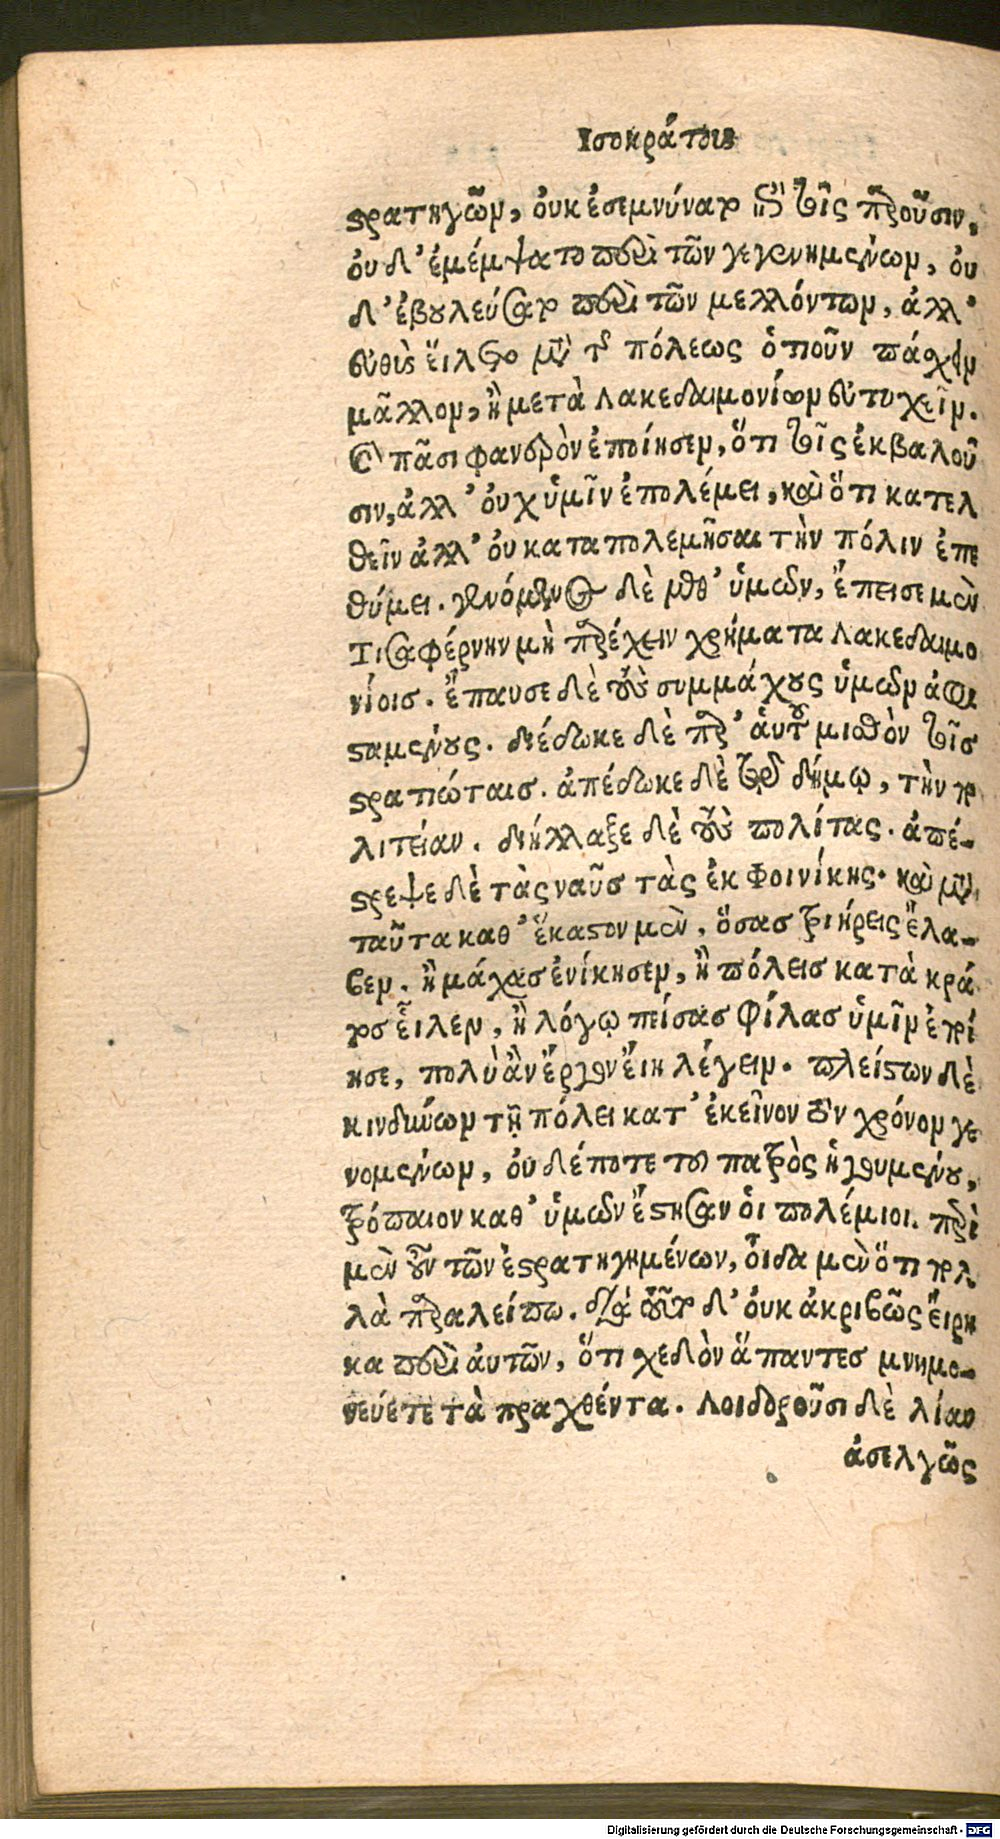 Ισοκράτους
στρατηγῶν, ὀυκ ἐσεμνύνατο ἐπὶ τοῖς παροῦσιν,
ὀυδ' ἐμέμψατο περὶ τῶν γεγενημένων, ὀυ
δ' ἐβουλεύσατο περὶ τῶν μελλόντων, ἀλλ'
ἐυθὺς ἕιλετο μετὰ τῆς πόλεως ὁτιοῦν πάσχειν
μᾶλλον, ἢ μετὰ Λακεδαιμονίων ἐυτυχεῖν.
καὶ πᾶσι φανερὸν ἐποίησεν, ὅτι τοῖς ἐκβαλοῦ
σιν, ἀλλ' ὀυχ ὑμῖν ἐπολέμει, καὶ ὅτι κατελ
θεῖν ἀλλ' ὀυ καταπολεμῆσαι τὴν πόλιν ἐπε
θύμει. γενόμενος δὲ μεθ' ὑμῶν, ἔπεισε μὲν
Τισαφέρνην μὴ παρέχειν χρήματα Λακεδαιμο
νίοις. ἔπαυσε δὲ τοὺς συμμάχους ὑμῶν ἀφι
σταμένους. διέδωκε δὲ παρ' ἁυτοῦ μισθὸν τοῖς
στρατιώταις. ἀπέδωκε δὲ τῷ δήμῳ, τὴν πο
λιτείαν. διήλλαξε δὲ τοὺς πολίτας. ἀπέ-
στρεψε δὲ τὰς ναῦς τὰς ἐκ Φοινίκης. καὶ μετὰ
ταῦτα καθ' ἕκαστον μὲν, ὅσας τριήρεις ἔλα-
βεν. ἢ μάχας ἐνίκησεν, ἢ πόλεις κατὰ κρά
τος εἷλεν, ἢ λόγῳ πείσας φίλας ὑμῖν ἐποί
ησε, πολὺ ἂν ἔργον ἔιη λέγειν. πλείστων δὲ
κινδύνων τῇ πόλει κατ' ἐκεῖνον τὸν χρόνον γε
νομένων, ὀυδέποτε τοῦ πατρὸς ἡγουμένου,
τρόπαιον καθ' ὑμῶν ἔστησαν ὁι πολέμιοι. περὶ
μὲν οὖν τῶν ἐστρατηγημένων, οἶδα μὲν ὅτι πολ
λὰ παραλείπω. διὰ τοῦτο δ' ὀυκ ἀκριβῶς ἔιρη
κα περὶ ἀυτῶν, ὅτι σχεδὸν ἅπαντες μνημο-
νεύετε τὰ πραχθέντα. λοιδοροῦσι δὲ λίαν
ἀσελγῶς
Digitalisierung gefördert durch die Deutsche Forschungsgemeinschaft - DFG